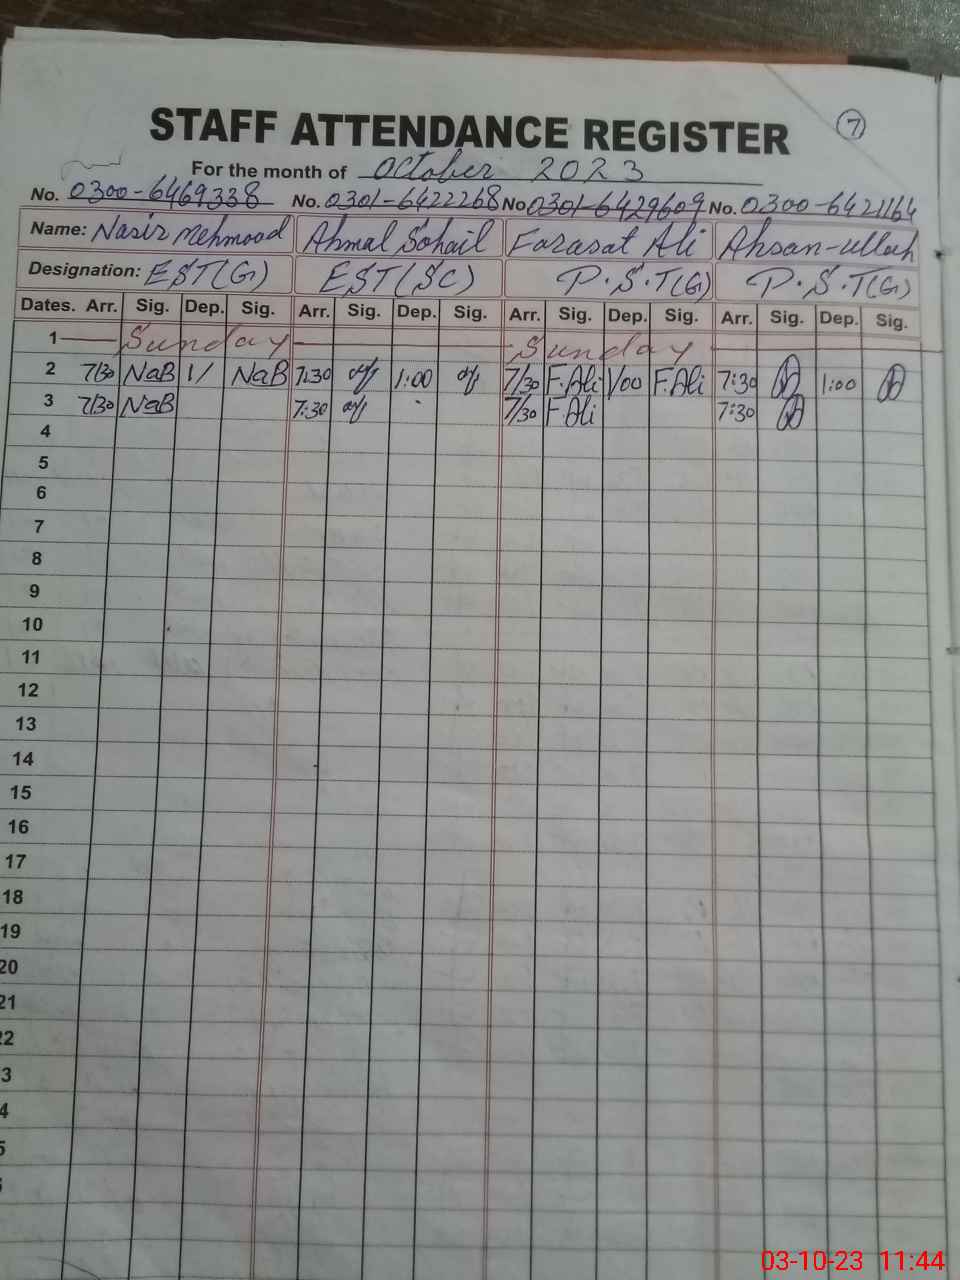 STAFF ATTENDANCE REGISTER 7
For the month of October 2023
No. 0300-6469338 No. 0301-6422268 No 0301-6429609 No. 0300-6421164
Name: Nasir Mehmood Ahmal Sohail Farasat Ali Ahsan-ullah
Designation: EST(G) EST(SC) P.S.T(G) P.S.T(G)
Dates. Arr. Sig. Dep. Sig. Arr. Sig. Dep. Sig. Arr. Sig. Dep. Sig. Arr. Sig. Dep. Sig.
1 Sunday Sunday
2 7/30 NaB 1/ NaB 7:30 1:00 7/30 F.Ali 1/00 F.Ali 7:30 1:00
3 7/30 NaB 7:30 7/30 F.Ali 7:30
4
5
6
7
8
9
10
11
12
13
14
15
16
17
18
19
20
21
2
3
4
5
03-10-23 11:44